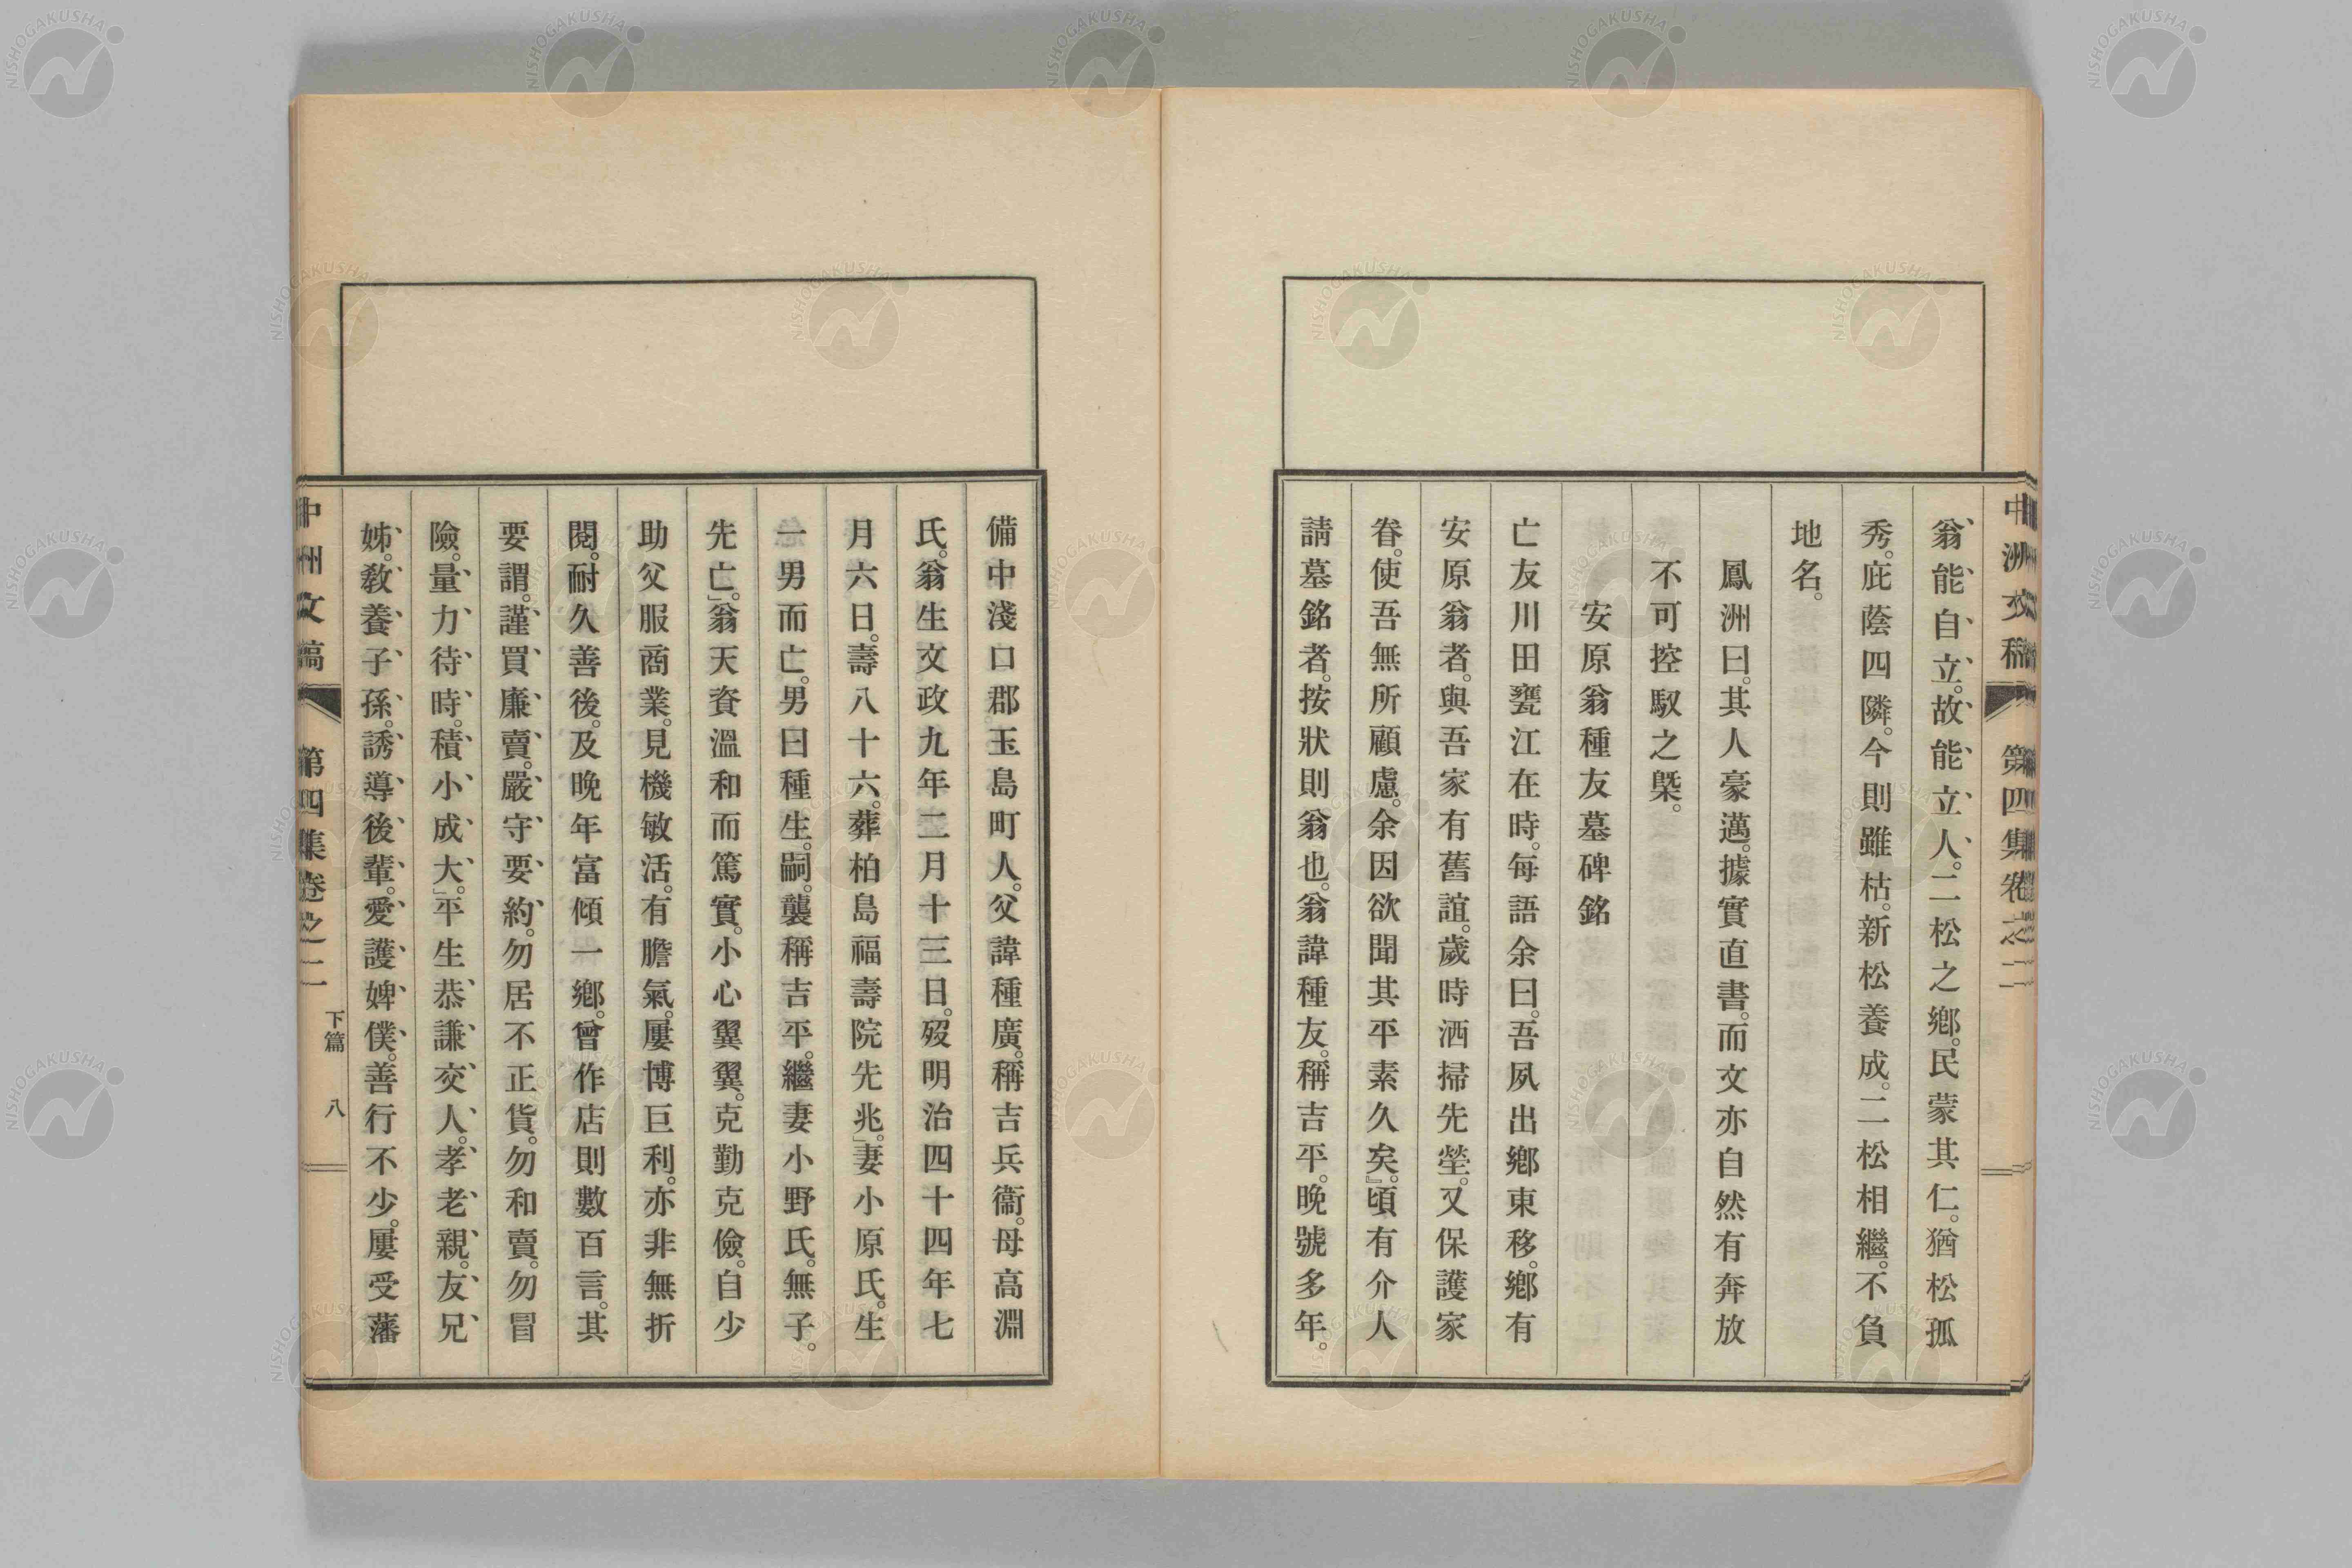 中洲文稿 第四集卷之二
翁能自立。故能立人。二松之鄉。民蒙其仁。猶松孤
秀。庇蔭四隣。今則雖枯。新松養成。二松相繼。不負
地名。
鳳洲曰。其人豪邁。據實直書。而文亦自然有奔放
不可控馭之槩。
安原翁種友墓碑銘
亡友川田甕江在時。每語余曰。吾夙出鄉東移。鄉有
安原翁者。與吾家有舊誼。歲時洒掃先塋。又保護家
眷。使吾無所顧慮。余因欲聞其平素久矣。』頃有介人
請墓銘者。按狀則翁也。翁諱種友。稱吉平。晚號多年。
備中淺口郡。玉島町人。父諱種廣。稱吉兵衞。母高淵
氏。翁生文政九年二月十三日。歿明治四十四年七
月六日。壽八十六。葬柏島福壽院先兆。」妻小原氏。生
一男而亡。男曰種生。嗣。襲稱吉平。繼妻小野氏。無子。
先亡。」翁天資溫和而篤實。小心翼翼。克勤克儉。自少
助父服商業。見機敏活。有膽氣。屢博巨利。亦非無折
閱。耐久善後。及晚年富傾一鄉。曾作店則數百言。其
要謂。謹買廉賣。嚴守要約。勿居不正貨。勿和賣。勿冒
險。量力待時。積小成大。」平生恭謙交人。孝老親。友兄
姊。敎養子孫。誘導後輩。愛護婢僕。善行不少。屢受藩
中洲文稿 第四集卷之二 下篇 八
NISHOGAKUSHA